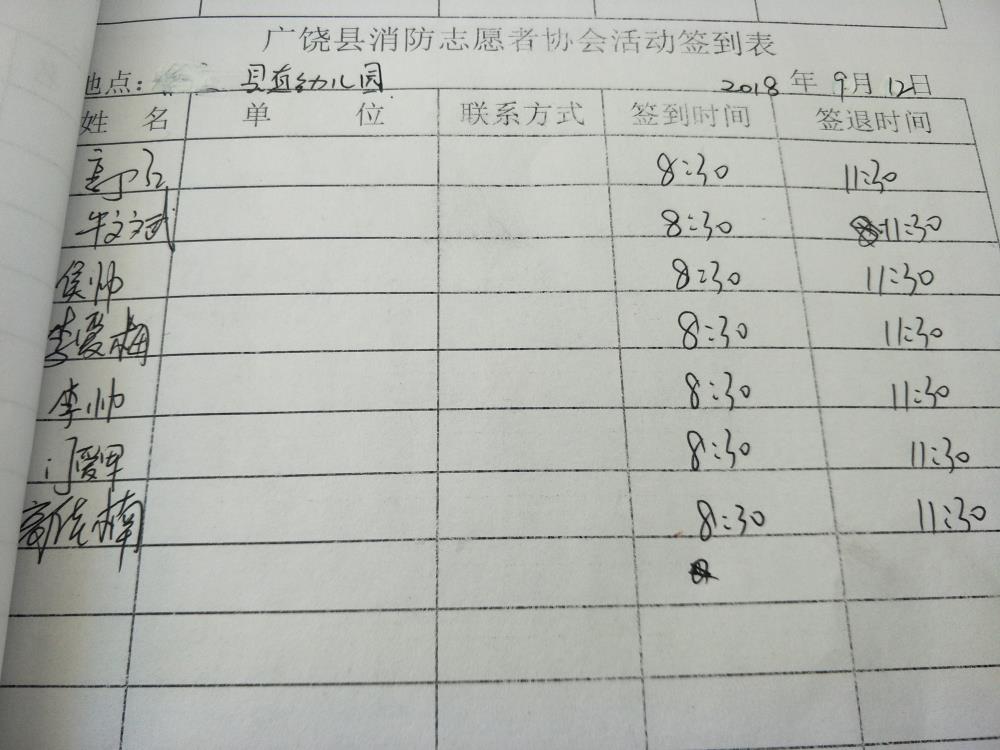 广饶县消防志愿者协会活动签到表
地点: 县直幼儿园 2018年9月12日
姓 名 单 位 联系方式 签到时间 签退时间
8:30 11:30
牛文武 8:30 11:30
侯帅 8:30 11:30
李爱梅 8:30 11:30
李帅 8:30 11:30
门爱军 8:30 11:30
高饶楠 8:30 11:30